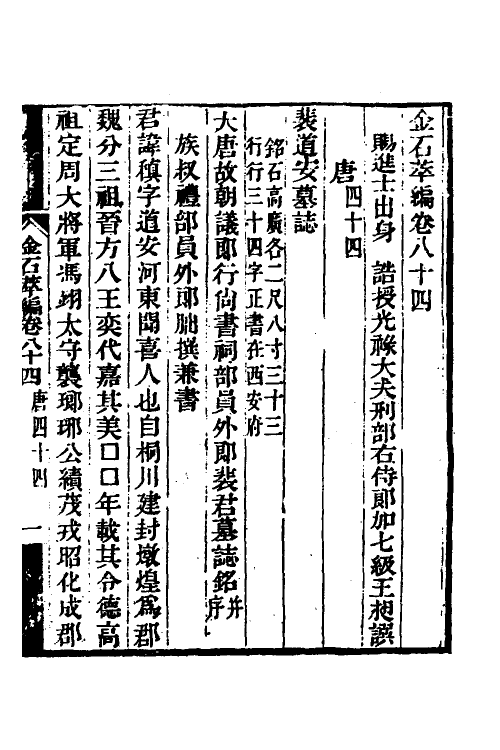 金石萃編卷八十四
賜進士出身　誥授光祿大夫刑部右侍郎加七級王昶譔
唐四十四
裴道安墓誌
銘石高廣各二尺八寸三十三
行行三十四字正書在西安府
大唐故朝議郎行尙書祠部員外郎裴君墓誌銘并序
族叔禮部員外郎朏撰兼書
君諱稹字道安河東聞喜人也自桐川建封燉煌爲郡
魏分三祖晉方八王奕代嘉其美□□年載其令德高
祖定周大將軍馮翊太守襲瑯琊公續茂戎昭化成郡
金石萃編卷八十四　唐四十四　一